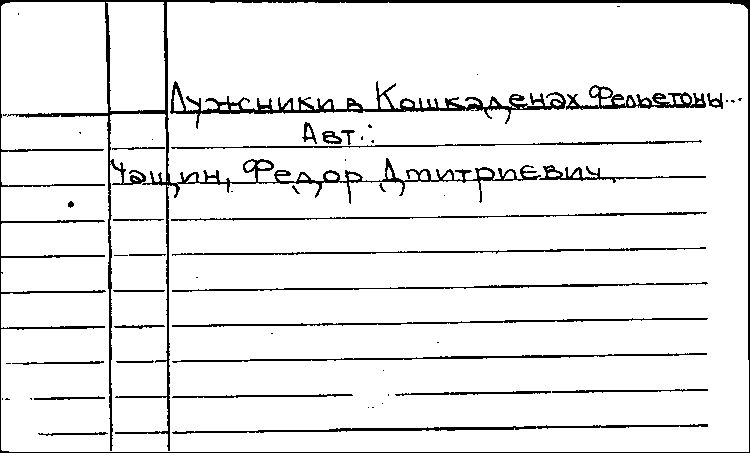 Лужники в Кошкаденах Фельетоны...
Авт.:
Чащин, Федор Дмитриевич.